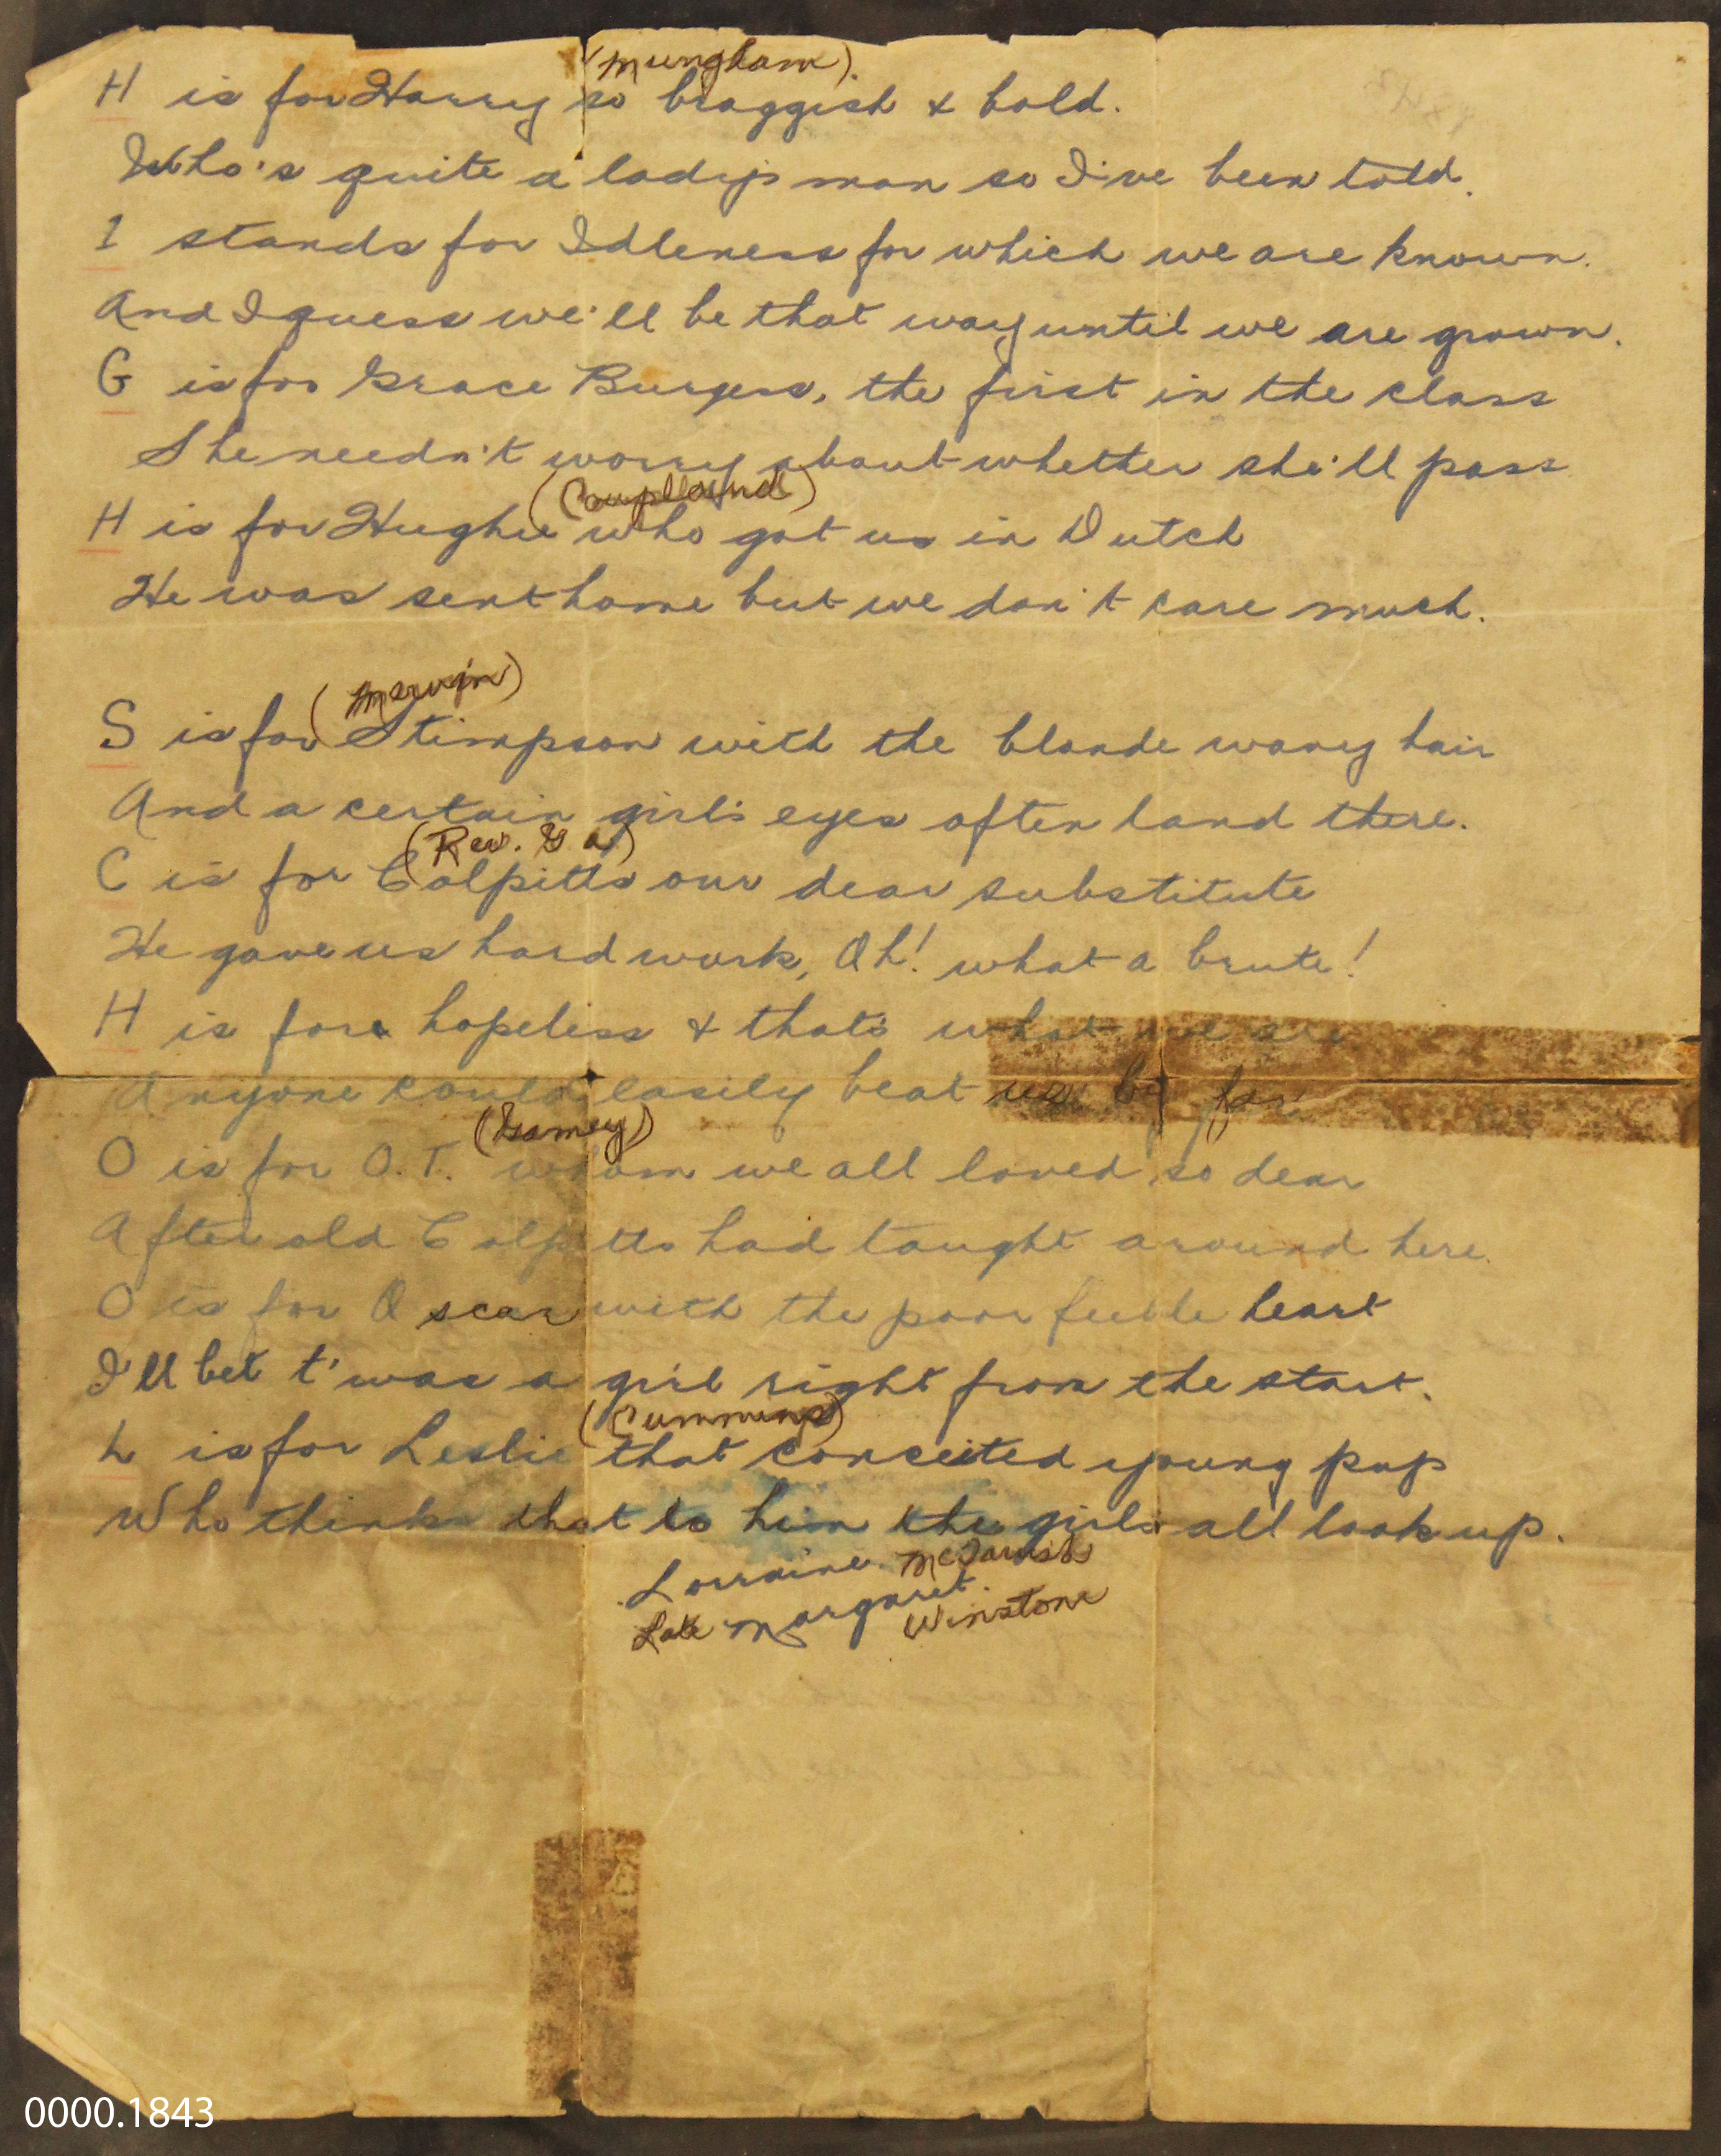 (Mungham).
H is for Harry so braggish & bold.
Who's quite a lady's man so I've been told.
I stands for Idleness for which we are known.
And I guess we'll be that way until we are grown.
G is for Grace Burgess, the first in the class
She needn't worry about whether she'll pass
(Coupland)
H is for Hughie who got us in Dutch
He was sent home but we don't care much.
(Mervin)
S is for Stimpson with the blonde wavy hair
And a certain girl's eyes often land there.
(Rev. G A)
C is for Colpitts our dear substitute
He gave us hard work, Oh! what a brute!
H is for hopeless & that's what we are
Anyone could easily beat us by far
(Gamey)
O is for O.T. whom we all loved so dear
After old Colpitts had taught around here.
O is for Oscar with the poor feeble heart
I'll bet t'was a girl right from the start.
(Cummings)
L is for Leslie that conceited young pup
Who thinks that to him the girls all look up.
Lorraine McTavish
Late Margaret Winstone
0000.1843